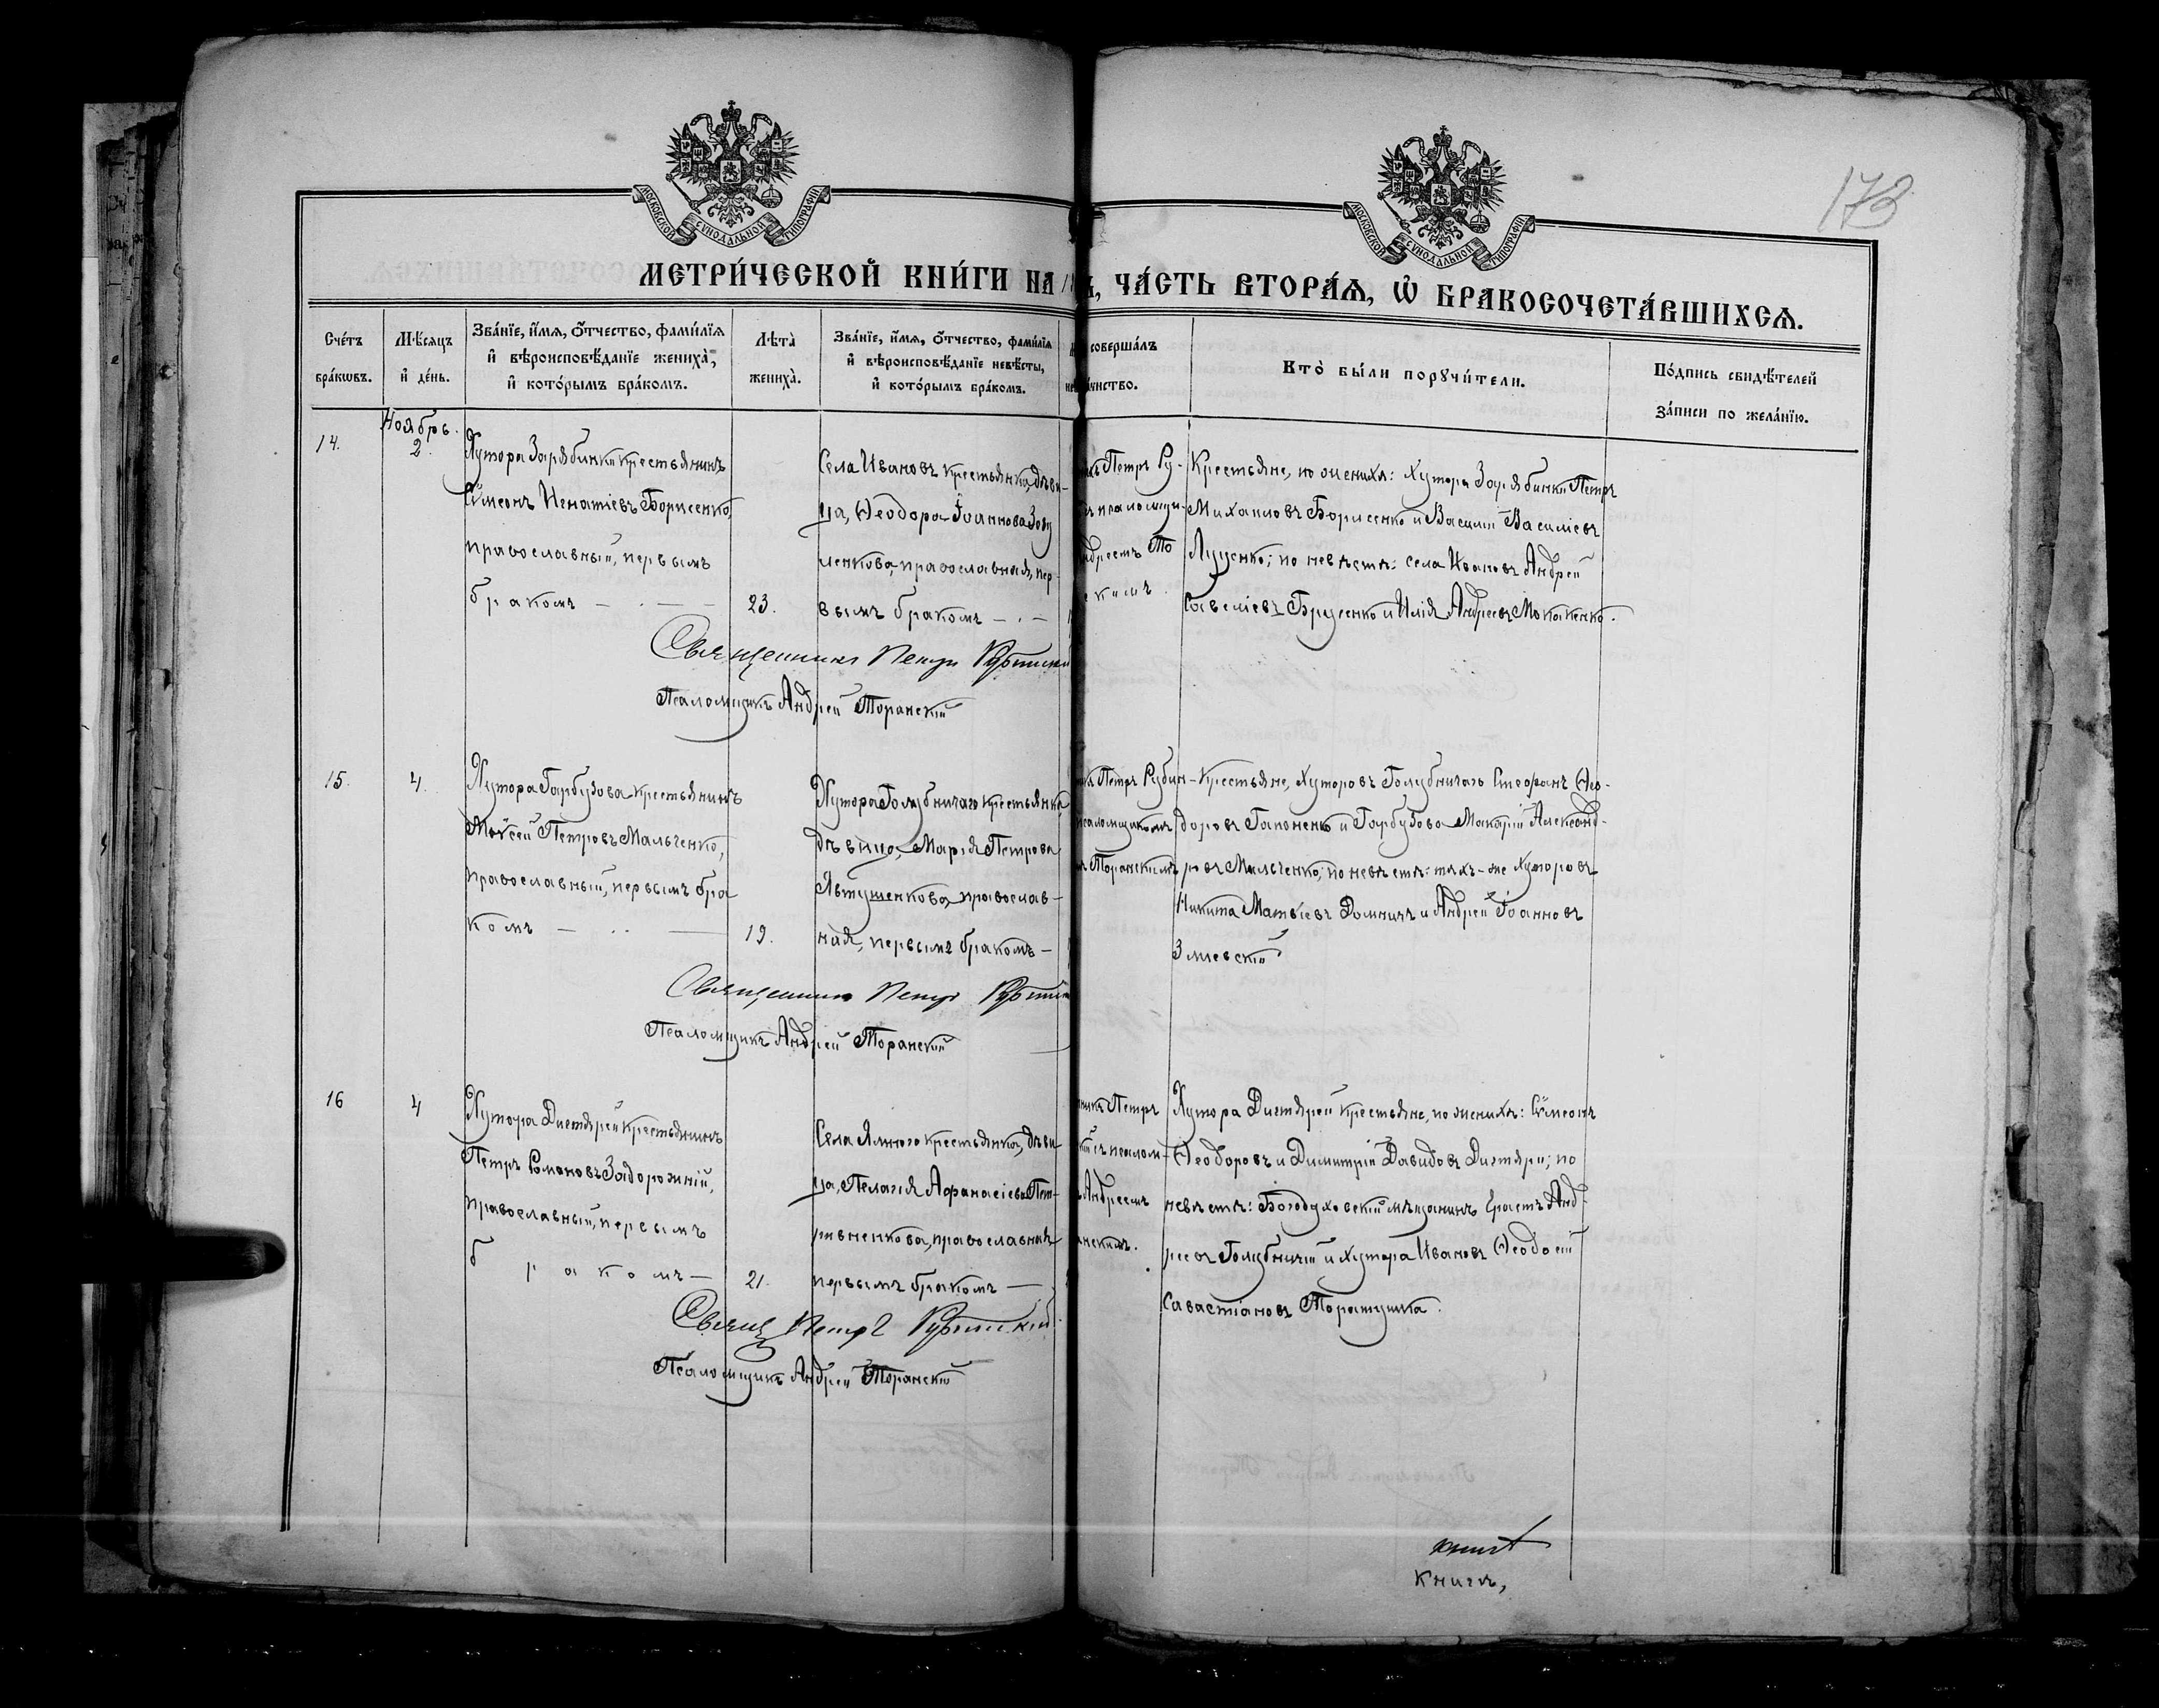 МОСКОВСКОЙ СѴНОДАЛЬНОЙ ТИПОГРАФІИ
МОСКОВСКОЙ СѴНОДАЛЬНОЙ ТИПОГРАФІИ
173
МЕТРИ́ЧЕСКОЙ КНИ́ГИ НА
ЧА́СТЬ ВТОРА́Ѧ, Ѡ҆ БРАКОСОЧЕТА́ВШИХСѦ.
Сче́тъ бра́кѡвъ.
Мѣ́сяцъ и҆ де́нь.
Зва́нїе, и҆́мѧ, ѻ҆́тчество, фами́лїѧ
и҆ вѣроисповѣ́данїе жениха̀,
и҆ кото́рымъ бра́комъ.
Лѣта̀ жениха̀.
Зва́нїе, и҆́мѧ, ѻ҆́тчество, фами́лїѧ
и҆ вѣроисповѣ́данїе невѣ́сты,
и҆ кото́рымъ бра́комъ.
соверша́лъ
Кто̀ бы́ли порꙋчи́тели.
По́дпись свидѣ́телей
за́писи по жела́нїю.
Ноябрь.
14.
2.
Хутора Зарябинки крестьянинъ
Сѵмеонъ Игнатіевъ Борисенко,
православный, первымъ
бракомъ
23.
Села Ивановъ крестьянка, дѣви-
ца, Ѳеодора Іоаннова
ленкова, православная, пер-
вымъ бракомъ
Петръ Ру-
псаломщи-
То
Крестьяне, по женихѣ: хутора Зарябинки Петръ
Михаиловъ Борисенко и Василій Василіевъ
Луценко; по невѣстѣ: села Ивановъ Андрей
Савеліевъ Бруенко и Илія Андреевъ Макаренко.
Священникъ Петръ Рубинскій
Псаломщикъ Андрей Торанскій
15.
4.
Хутора Гарбузова крестьянинъ
Моѵсей Петровъ Мальченко,
православный, первымъ бра
комъ
19.
Хутора Голубничаго крестьянка,
дѣвица, Марія Петрова
Явтушенкова, православ-
ная, первымъ бракомъ
Петръ Рубин-
саломщикомъ
Торанскимъ
Крестьяне, хуторовъ Голубничаго Стефанъ Ѳео-
доровъ Гапоненко и Гарбузова Макарій Александ-
ровъ Мальченко; по невѣстѣ: тѣхъ-же хуторовъ
Никита Матвіевъ Домничъ и Андрей Іоанновъ
Змievскій
Священникъ Петръ Рубинскій
Псаломщикъ Андрей Торанскій
16
4
Хутора Дигтярей крестьянинъ
Петръ Романовъ Задорожній,
православный, первымъ
бракомъ
21.
Села Ямного крестьянка, дѣви
ца, Пелагія Афанасіева Пет-
ривненкова, православная
первымъ бракомъ
Петръ
псалом-
Андреемъ
Хутора Дигтярей крестьяне, по женихѣ: Сѵмеонъ
Ѳеодоровъ и Димитрій Давидовъ Дигтяри; по
невѣстѣ: Богодуховскій мѣщанинъ Ерастъ Анд-
реевъ Голубничій и хутора Ивановъ Ѳеодосій
Савастіановъ
Свящ. Петръ Рубинскій
Псаломщикъ Андрей Торанскій
книгѣ,